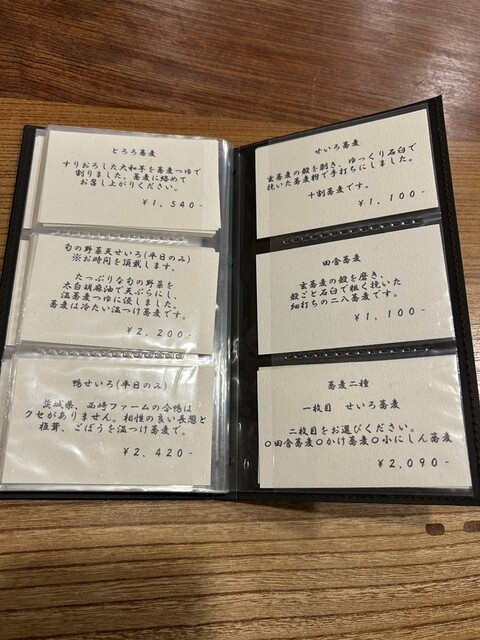 とろろ蕎麦
すりおろした大和芋を蕎麦つゆで
割りました。蕎麦に絡めて
お召し上がりください。
¥1,540-
旬の野菜天せいろ(平日のみ)
※お時間を頂戴します。
たっぷりな旬の野菜を
太白胡麻油で天ぷらにし、
温蕎麦つゆに優しました。
蕎麦は冷たい温つけ蕎麦です。
¥2,200-
鴨せいろ(平日のみ)
茨城県、西崎ファームの合鴨は
クセがありません。相性の良い長葱と
椎茸、ごぼうを温つけ蕎麦で。
¥2,420-
せいろ蕎麦
玄蕎麦の殻を剥き、ゆっくり石臼で
挽いた蕎麦粉で手打ちにしました。
十割蕎麦です。
¥1,100-
田舎蕎麦
玄蕎麦の殻を磨き、
殻ごと石臼で粗く挽いた
細打ちの二八蕎麦です。
¥1,100-
蕎麦二種
一枚目 せいろ蕎麦
二枚目をお選びください。
○田舎蕎麦○かけ蕎麦○小にしん蕎麦
¥2,090-